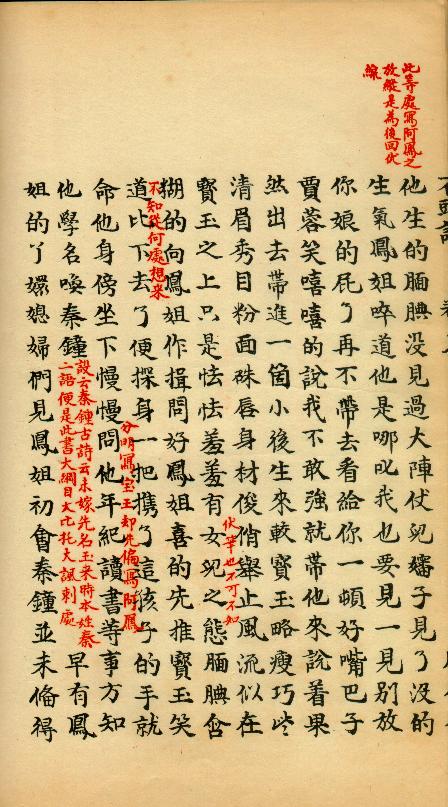 此等處寫阿鳳之
放縱是為後回伏
線
他生的腼腆沒見過大陣仗兒嬸子見了沒的
生氣鳳姐啐道他是哪吒我也要見一見別放
你娘的屁了再不帶去看給你一頓好嘴巴子
賈蓉笑嘻嘻的說我不敢強就帶他來說着果
然出去帶進一箇小後生來較寳玉略瘦巧些
清眉秀目粉面硃唇身材俊俏舉止風流似在
伏筆也不可不知
寳玉之上只是怯怯羞羞有女兒之態腼腆含
糊的向鳳姐作揖問好鳳姐喜的先推寳玉笑
不知從何處想來
道比下去了便探身一把携了這孩子的手就
分明寫宝玉却先偏寫阿鳳
命他身傍坐下慢慢問他年紀讀書等事方知
他學名喚秦鐘
設云秦鐘古詩云未嫁先名玉來時本姓秦
二語便是此書大綱目大比托大諷刺處
早有鳳
姐的丫嬛媳婦們見鳳姐初會秦鐘並未俻得